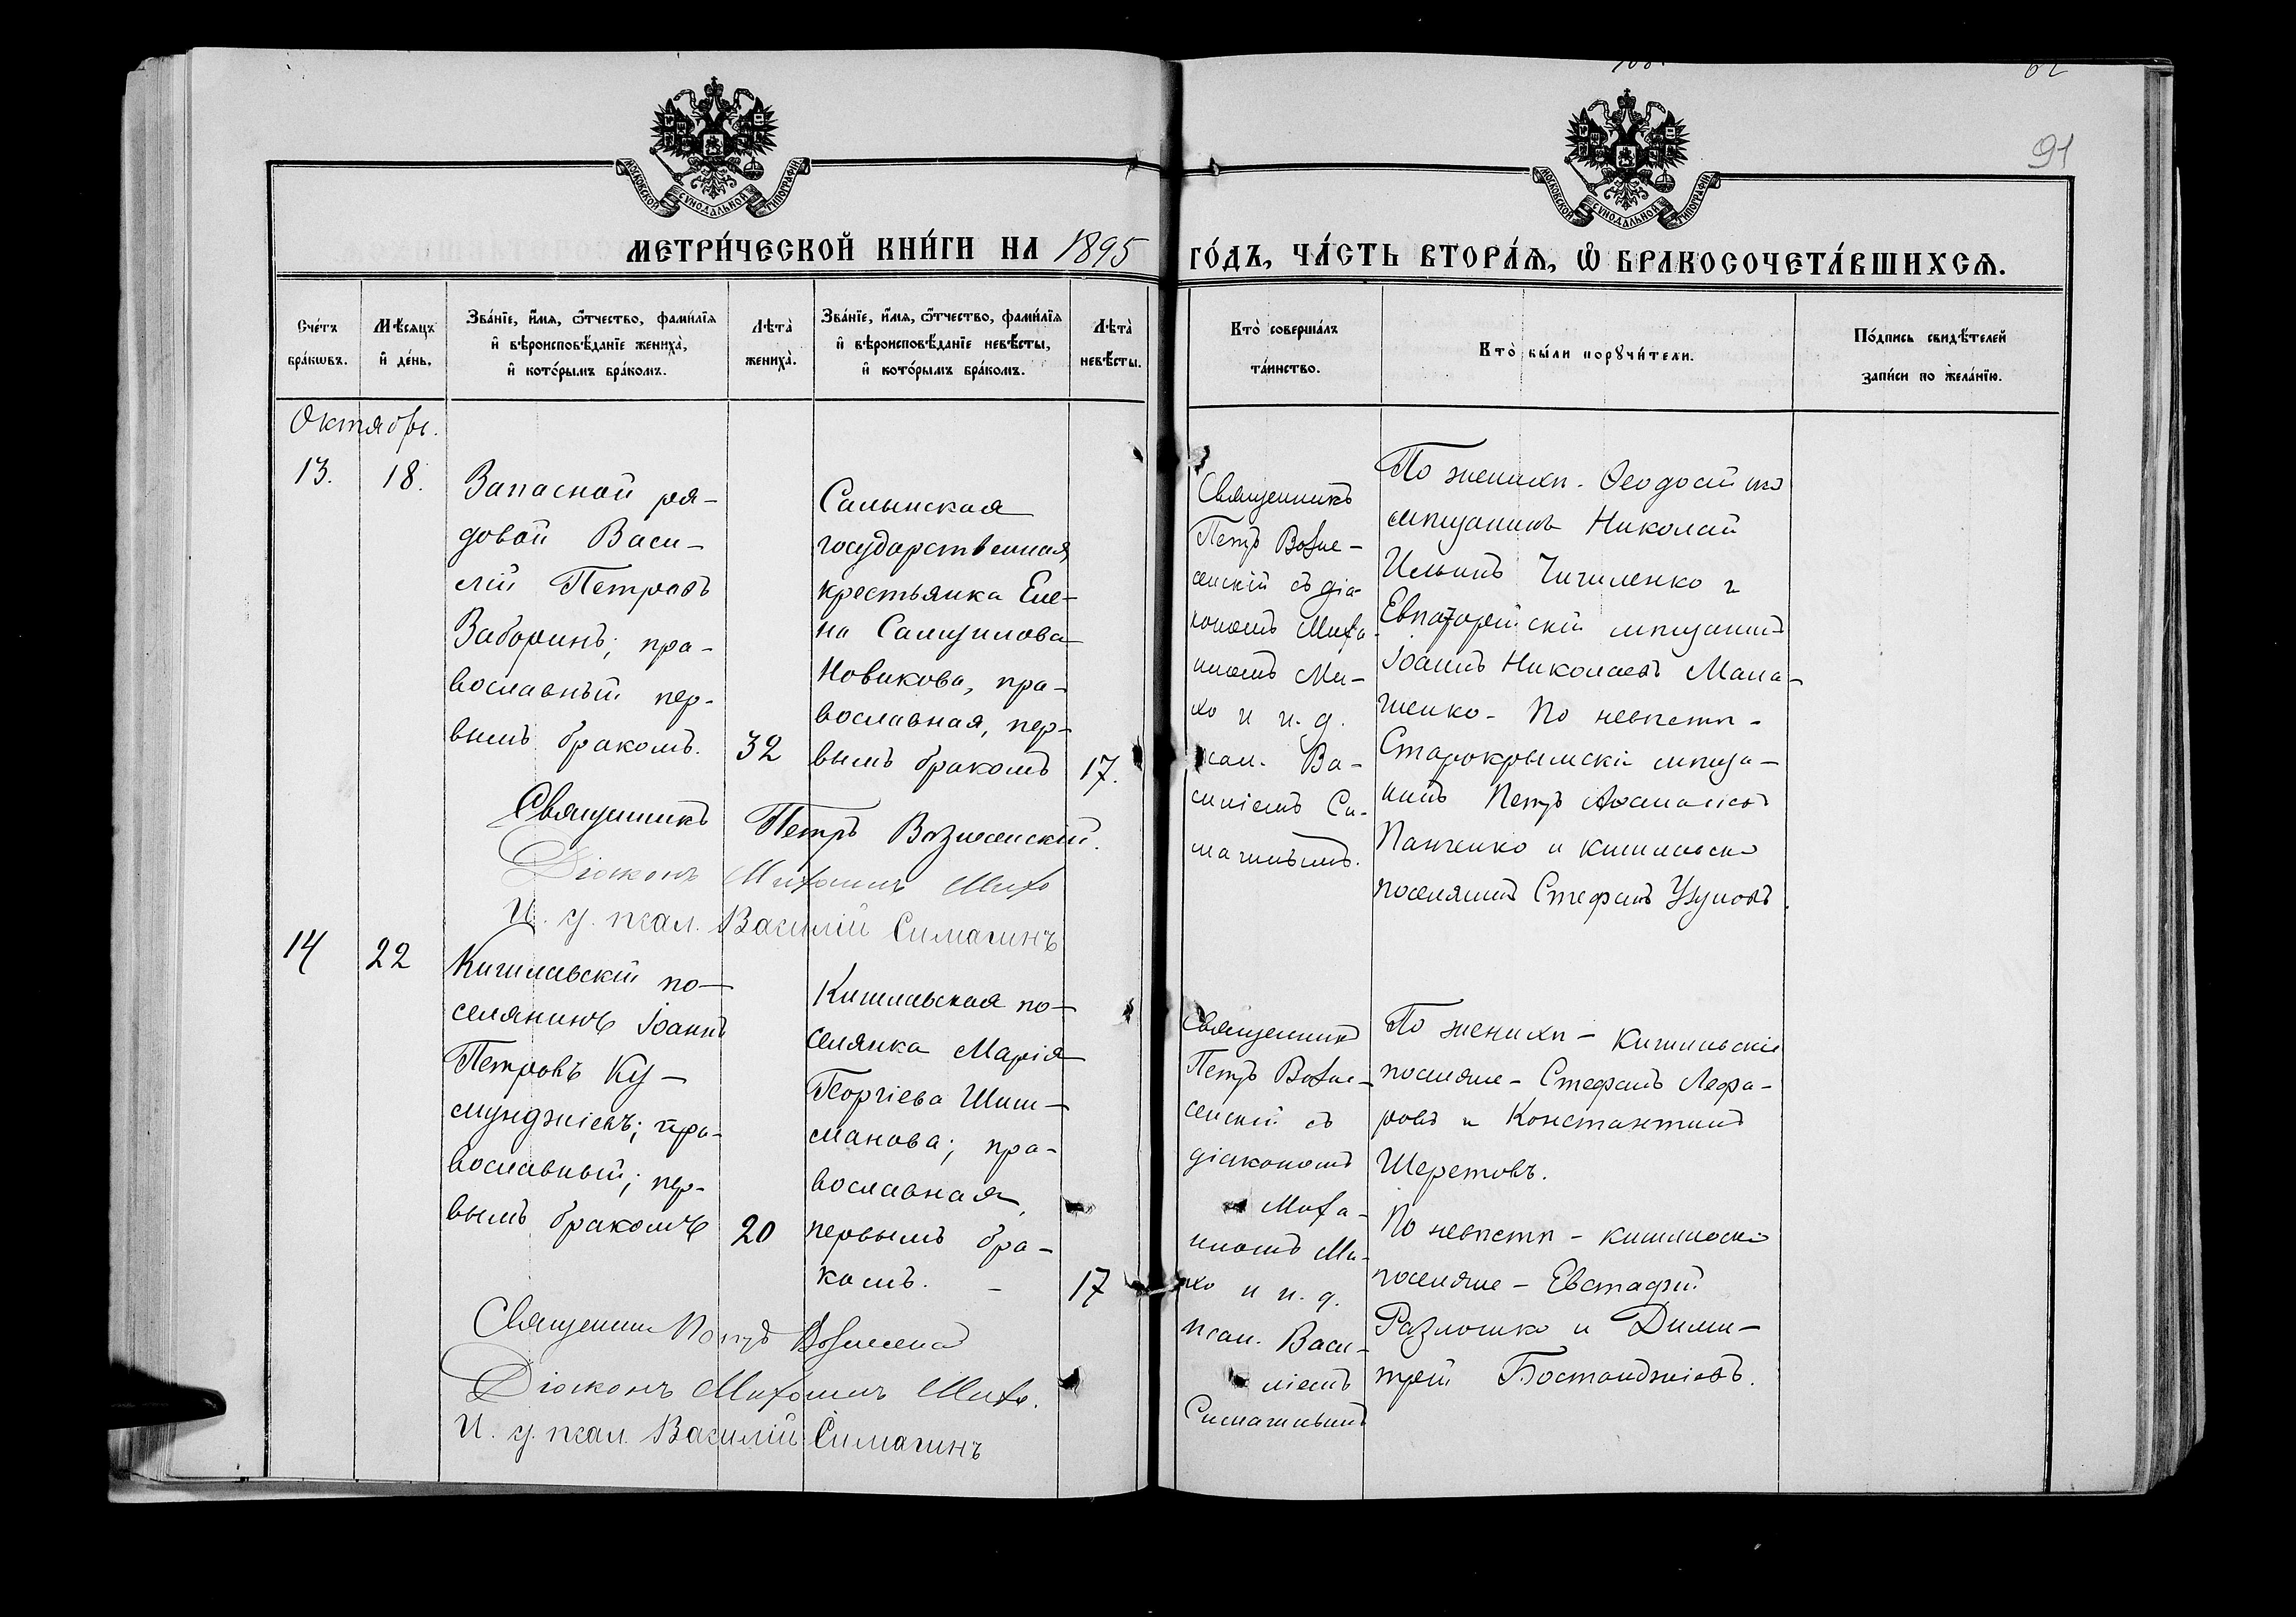 91
МОСКОВСКОЙ СУНОДАЛЬНОЙ ТИПОГРАФІИ
МОСКОВСКОЙ СУНОДАЛЬНОЙ ТИПОГРАФІИ
МЕТРИ́ЧЕСКОЙ КНИ́ГИ НА 1895
ГО́ДЪ, ЧА́СТЬ ВТОРА́Ѧ, Ѡ҆ БРАКОСОЧЕТА́ВШИХСѦ.
Сче́тъ
бра́кѡвъ.
Мѣ́сѧцъ
и҆ де́нь.
Зва́нїе, и҆́мѧ, ѻ҆́тчество, фами́лїѧ
и҆ вѣроисповѣ́данїе жениха̀,
и҆ кото́рымъ бра́комъ.
Лѣта̀
жениха̀.
Зва́нїе, и҆́мѧ, ѻ҆́тчество, фами́лїѧ
и҆ вѣроисповѣ́данїе невѣ́сты,
и҆ кото́рымъ бра́комъ.
Лѣта̀
невѣ́сты.
Кто̀ соверша́лъ
та́инство.
Кто̀ бы́ли порꙋчи́тели.
По́дпись свидѣ́телей
за́писи по жела́нїю.
Октябрь.
13.
18.
Запасной ря-
довой Васи-
лій Петровъ
Заборинъ; пра-
вославный пер-
вымъ бракомъ.
32
Салынская
государственная
крестьянка Еле-
на Самуилова
Новикова, пра-
вославная, пер-
вымъ бракомъ
17.
Священникъ
Петръ Возне-
сенскій съ діа-
кономъ Миха-
иломъ Ми-
хо и и. д.
псал. Ва-
силіемъ Си-
магинымъ.
По женихѣ. Ѳеодосійскій
мѣщанинъ Николай
Ильинъ Чигиленко и
Евпаторійскій мѣщанинъ
Іоаннъ Николаевъ Мана-
шенко. По невѣстѣ -
Старокрымскій мѣща-
нинъ Петръ Аѳанасіевъ
Панченко и кишлавскій
поселянинъ Стефанъ Узуновъ.
Священникъ Петръ Вознесенскій.
Діаконъ Михаилъ Михо
И. д. псал. Василій Симагинъ
14
22
Кишлавскій по-
селянинъ Іоаннъ
Петровъ Ку-
мунджіевъ; пра-
вославный; пер-
вымъ бракомъ
20
Кишлавская по-
селянка Марія
Георгіева Шиш-
манова; пра-
вославная,
первымъ бра-
комъ. -
17
Священникъ
Петръ Возне-
сенскій съ
діакономъ
Миха-
иломъ Ми-
хо и и. д.
псал. Васи-
ліемъ
Симагинымъ
По женихѣ - Кишлавскіе
поселяне - Стефанъ Лефа-
ровъ и Константинъ
Шеретовъ.
По невѣстѣ - кишлавскіе
поселяне - Евстафій
Размошко и Дими-
трій Бостанджіевъ.
Священникъ Петръ Вознесенскій
Діаконъ Михаилъ Михо.
И. д. псал. Василій Симагинъ